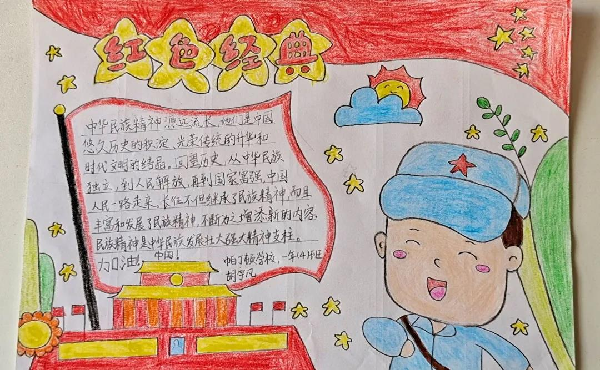 红色经典
中华民族精神源远流长，他们是中国
悠久历史的积淀，光荣传统的升华和
时代文明的结晶。回望历史，从中华民族
独立，到人民解放，再到国家富强，中国
人民一路走来，长征不但继承了民族精神，而且
丰富和发展了民族精神，不断为之增添新的内容，
民族精神是中华民族发展壮大强大精神支柱。
加油！中国！
学校，一年